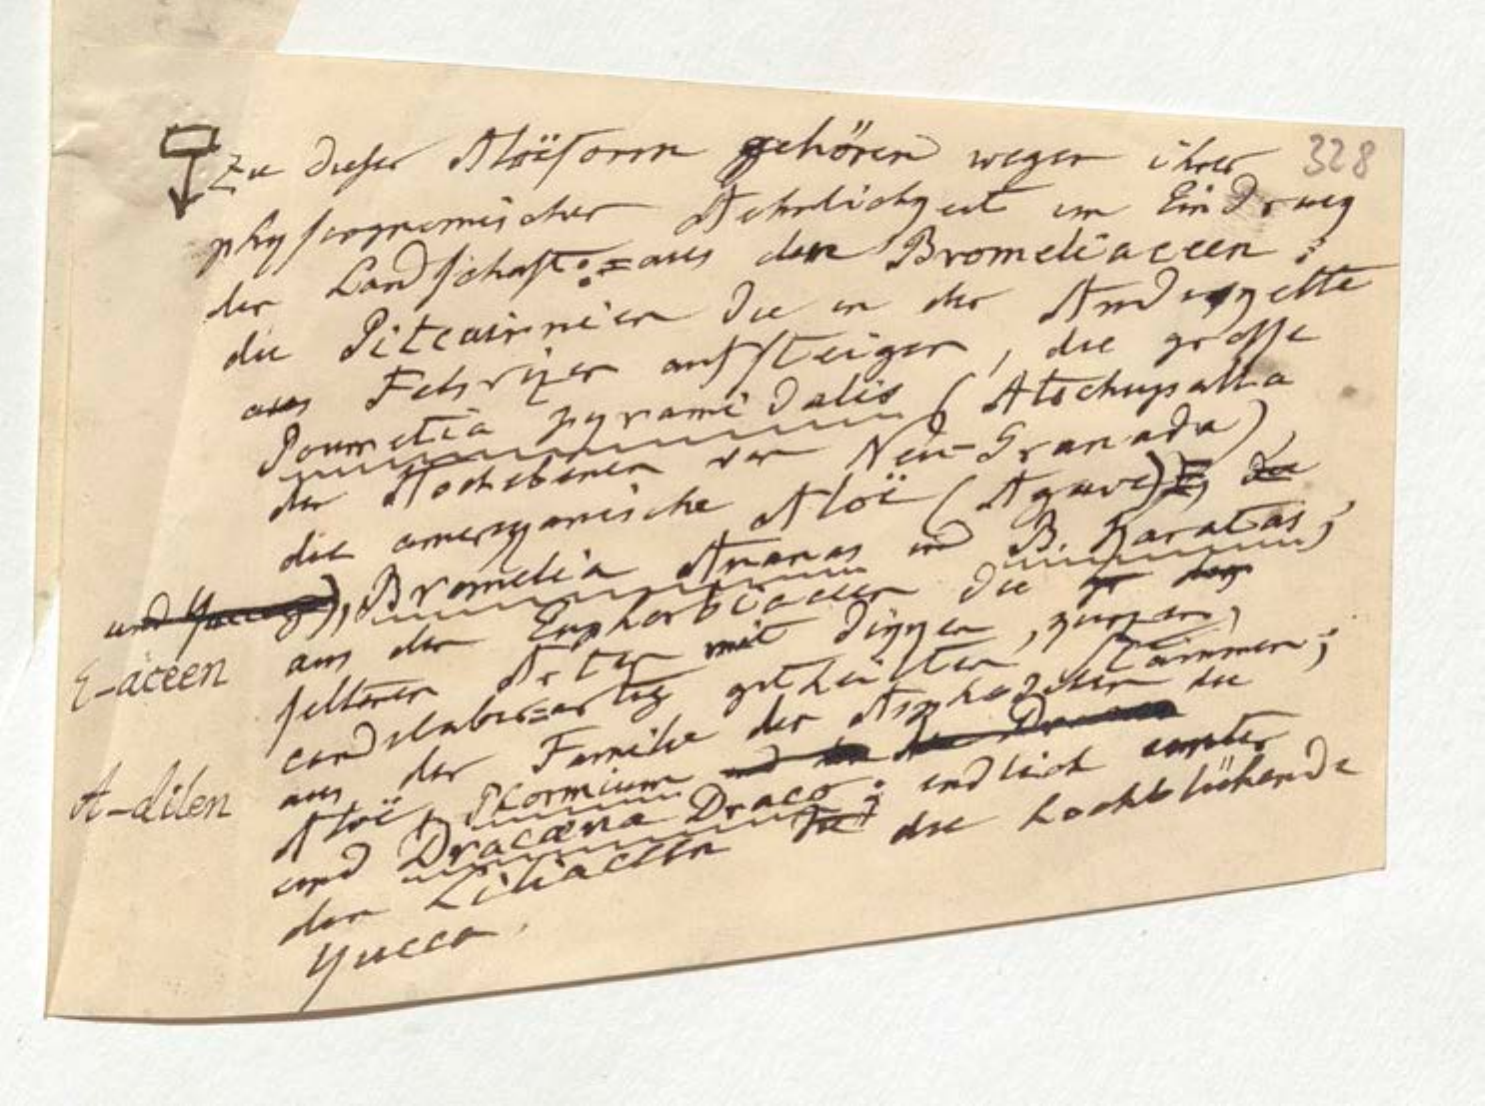 328
Zu dieser Aloëform gehören wegen ihrer
physiognomischen Aehnlichkeit im Eindruck
der Landschaft: aus den Bromeliaceen:
die Pitcairnien die in der Andeskette
aus Felsrizen aufsteigen, die grosse
Pournetia pyramidalis (Atschupalla
der Hochebenen von Neu-Granada),
die amerikanische Aloë (Agave), die
und Yucca), Bromelia Ananas und B. Karatas;
aus den Euphorbiaceen die
E-aceen
seltenen Arten mit dikken, kurzen,
candelaber-artig getheilten Stämmen;
aus der Familie der Asphodelen die
A-dilen
Aloë, Phormium und
und Dracæna Draco; endlich unter
den Liliaceen die hochblühende
Yucca.